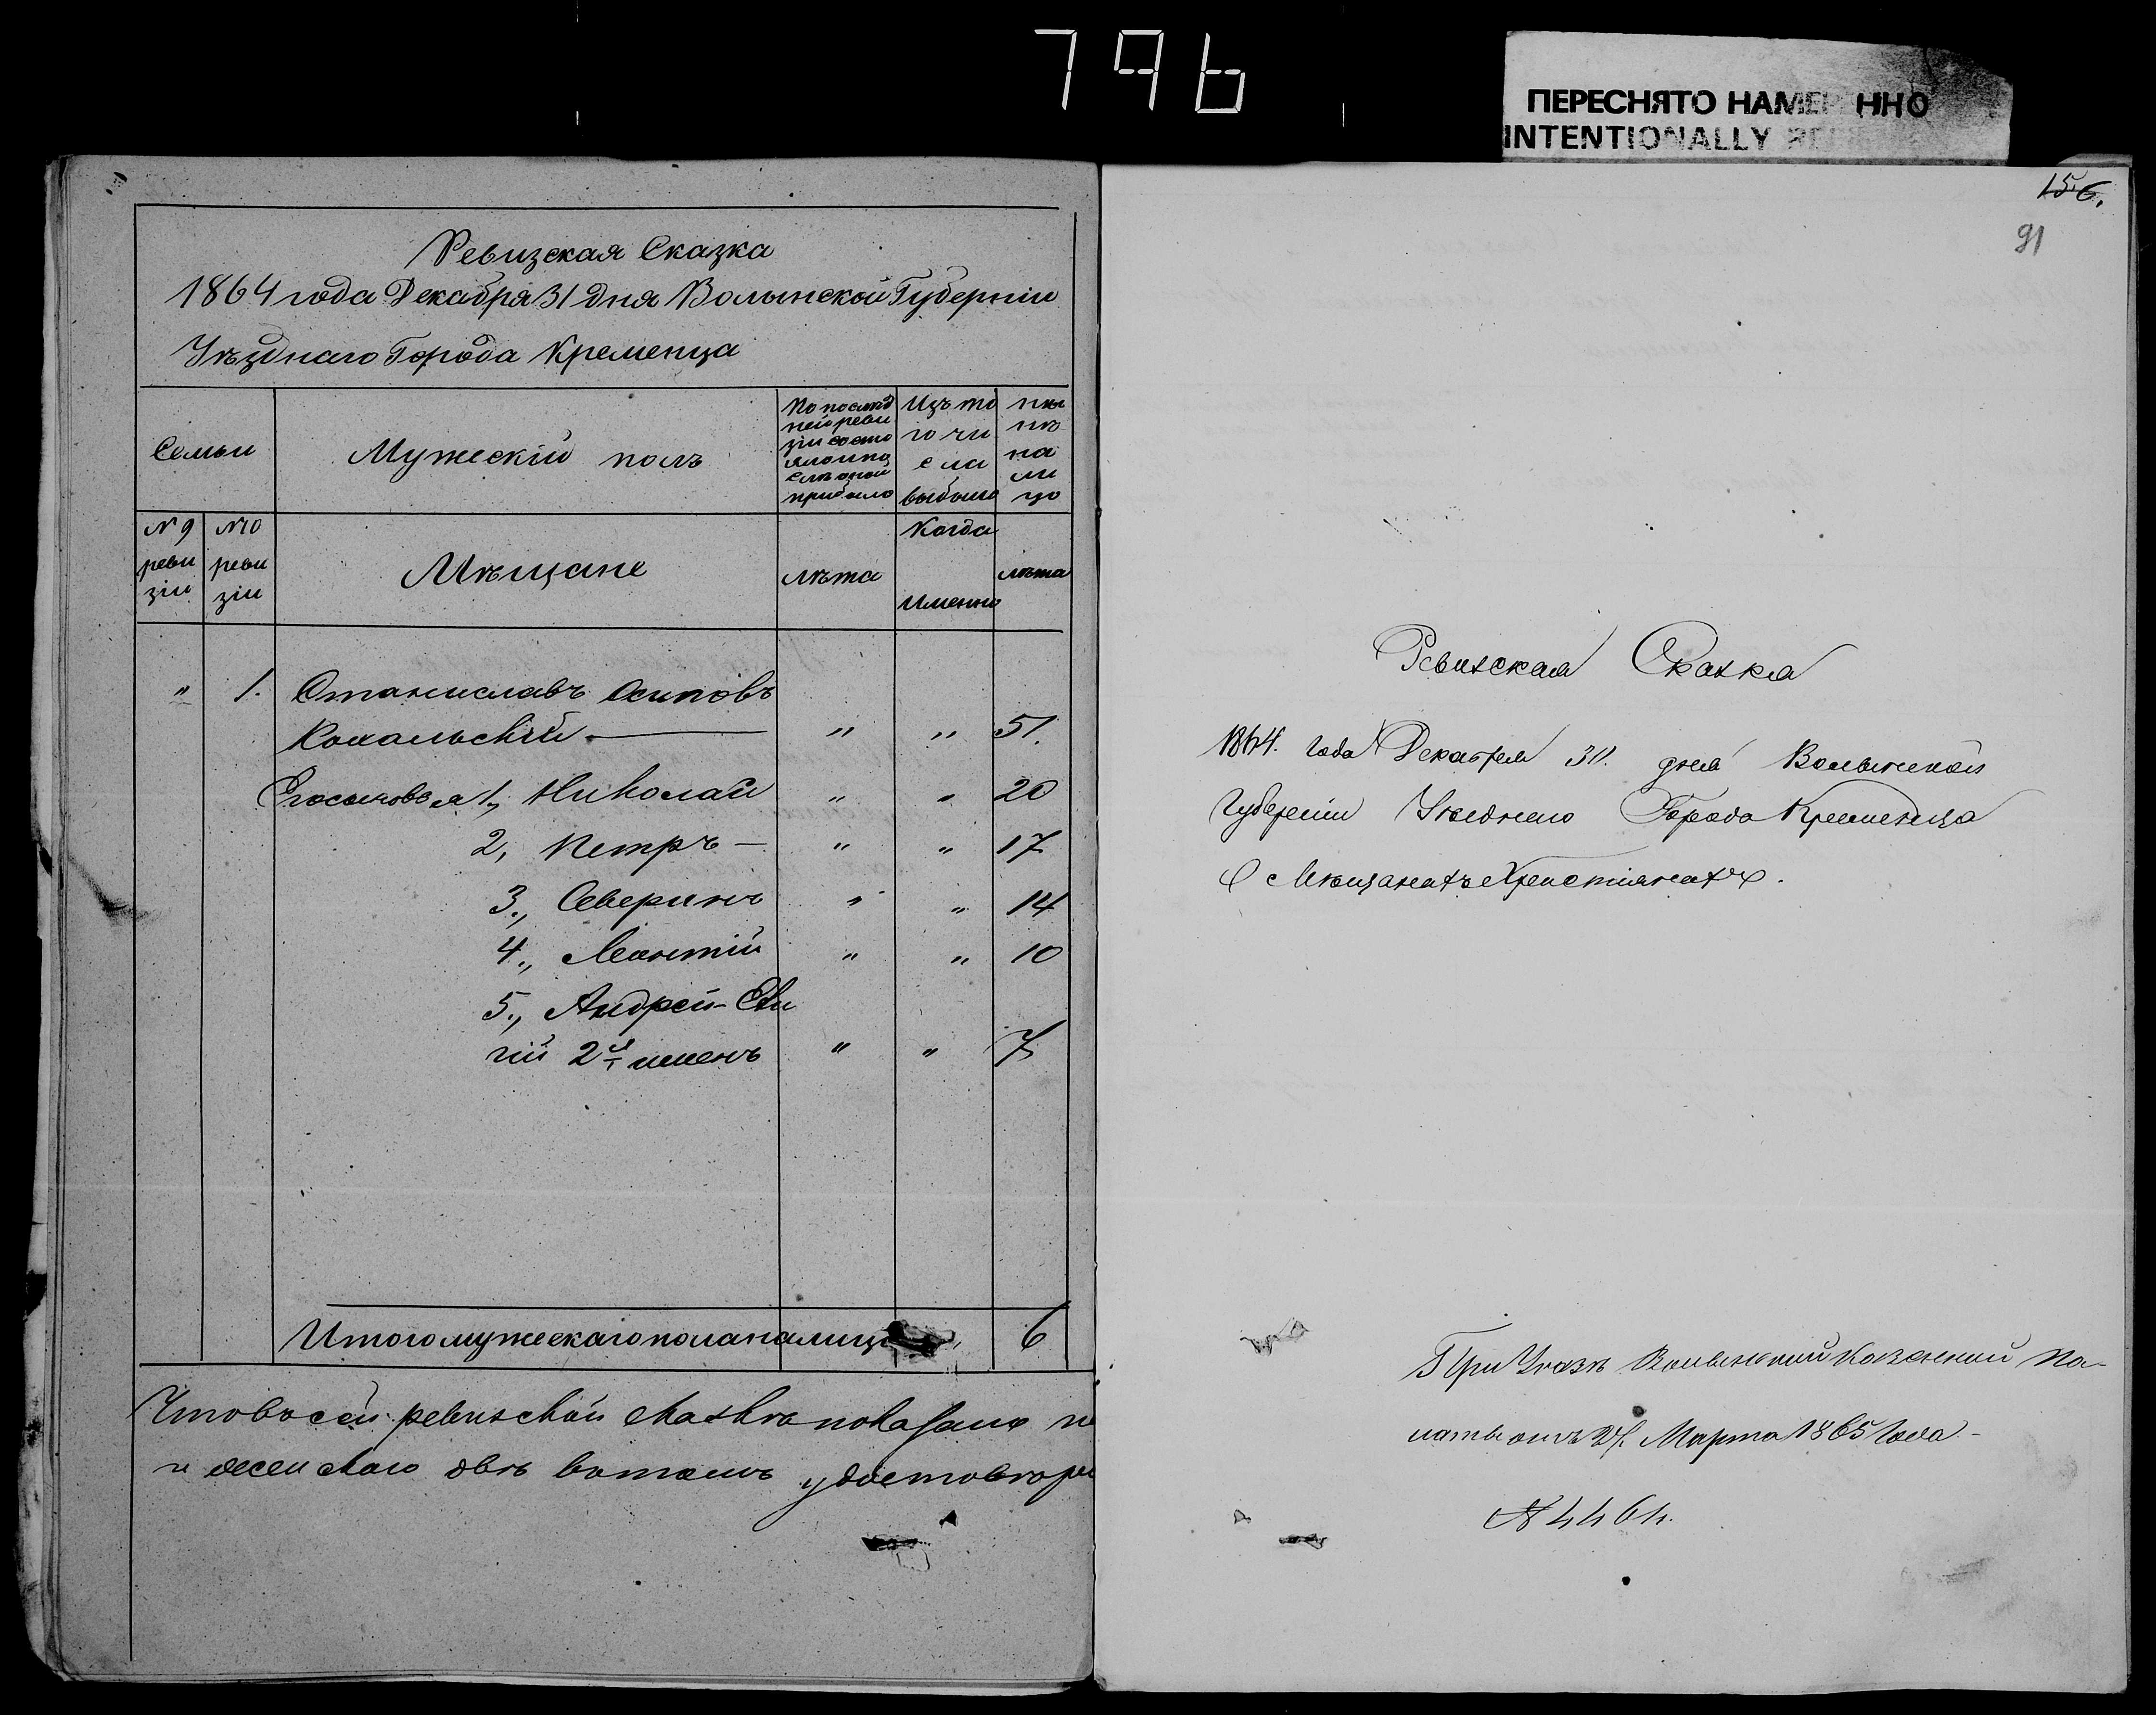 796
ПЕРЕСНЯТО НАМЕР ННО
INTENTIONALLY
Ревизская Сказка
1864 года Декабря 31 дня Волынской Губерніи
Уѣзднаго Города Кременца
Семьи
Мужескій полъ
По послѣд
ней реви
зіи состо
яло и по
слѣ оной
прибыло
Изъ то
го чи
сла
выбыло
ны
нѣ
на
ли
цо
№ 9
реви
зіи
№10
реви
зіи
Мѣщане
лѣта
Когда
Именно
лѣта
" 1. Станиславъ Осиповъ
" " 51.
Его сыновья 1, Николай " " 20
2, Петръ — " " 17
3., Северинъ " " 14
4., " " 10
5., Андрей-
гій 2хъ именъ " " 7
Итого мужескаго пола налицо 6
Что въ сей ревизской сказкѣ показано
и женскаго двѣ въ томъ
156.
91
Ревизская Сказка
1864. года Декабря 31. дня Волынской
Губерніи Уѣзднаго Города Кременца
О Мѣщанахъ Христіянахъ.
При Указѣ Волынской Казенной Па-
латы отъ 24 Марта 1865 Года -
№ 4464.